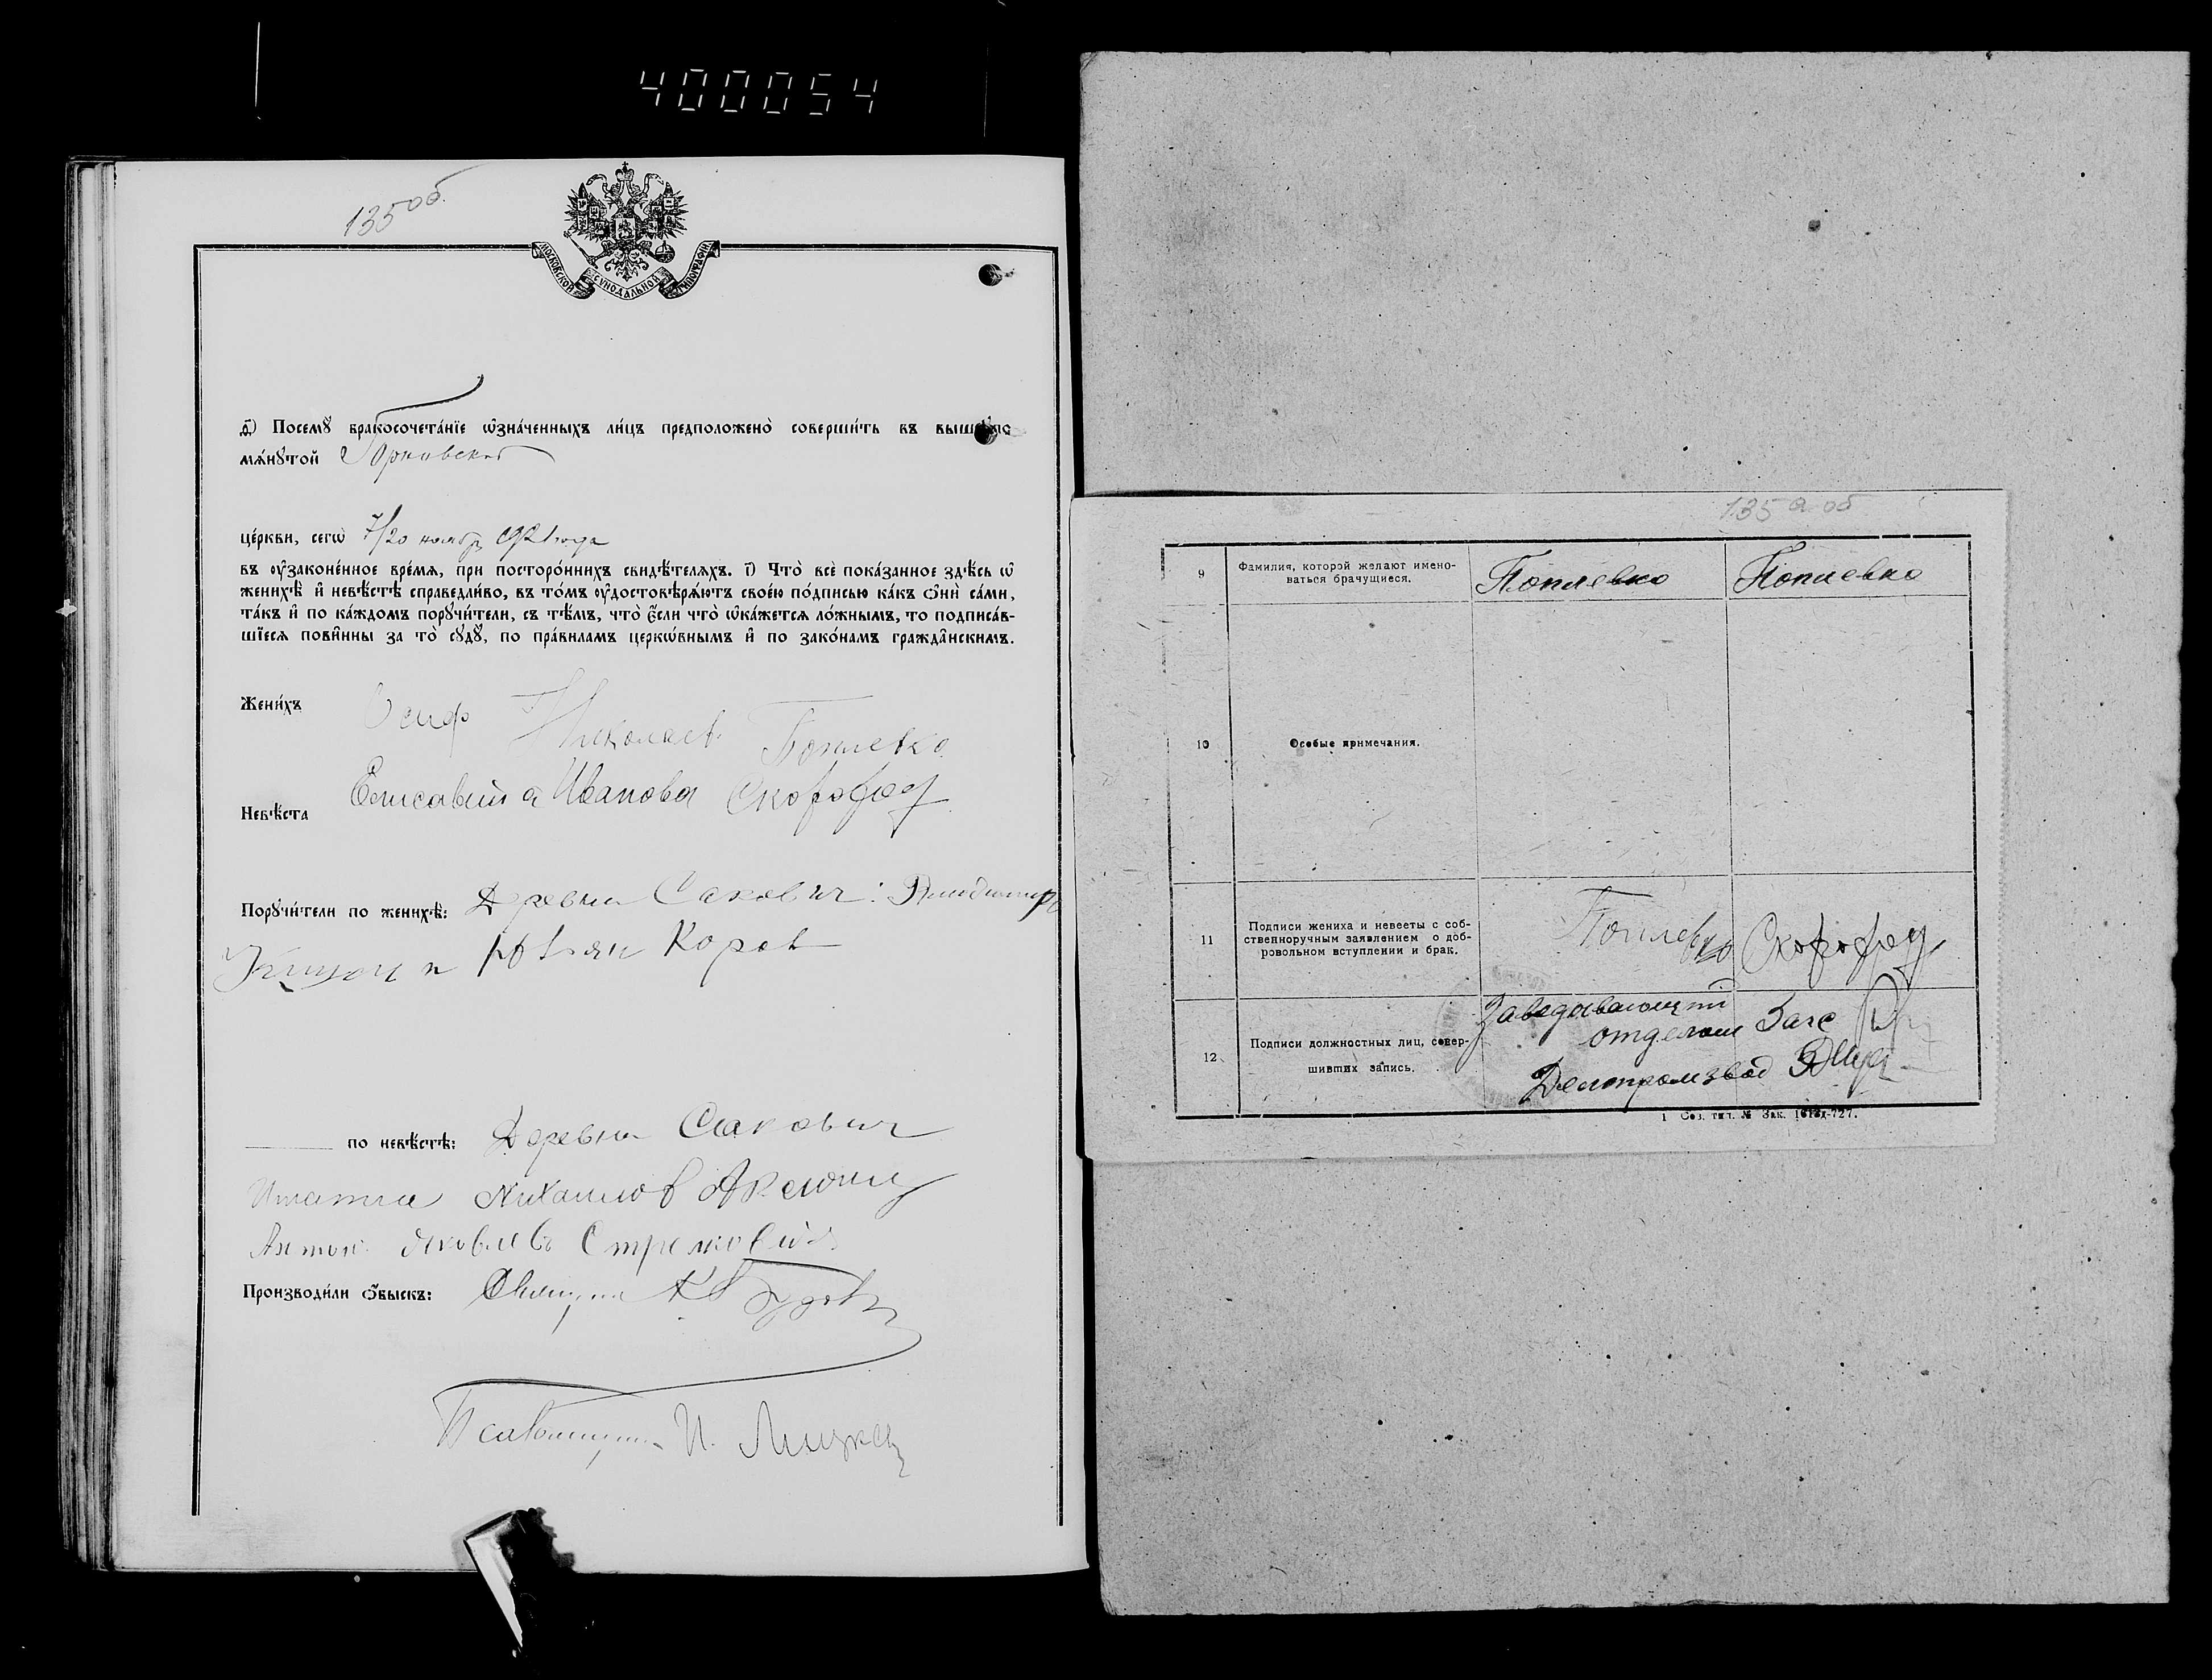 400054
135 об.
МОСКОВСКОЙ СѴНОДАЛЬНОЙ ТИПОГРАФІИ
д҃) Посемꙋ̀ бракосочета́нїе ѡ҆зна́ченныхъ ли́цъ предположено̀ соверши́ть въ вышепо
мѧ́нꙋтой
це́ркви, сегѡ̀ 7/20 ноябр 1921 года
въ ᲂу҆законе́нное вре́мѧ, при посторо́ннихъ свидѣ́телѧхъ. і҃) Что̀ всѐ пока́занное здѣ́сь ѡ҆
женихѣ̀ и҆ невѣ́стѣ справедли́во, въ то́мъ ᲂу҆достовѣрѧ́ютъ свое́ю по́дписью ка́къ ѻ҆нѝ са́ми,
та́къ и҆ по ка́ждомъ порꙋчи́тели, съ тѣ́мъ, что̀ є҆́сли что̀ ѡ҆ка́жетсѧ ло́жнымъ, то подписа́в-
шїесѧ пови́нны за то̀ сꙋдꙋ̀, по пра́виламъ церкѡ́внымъ и҆ по зако́намъ гражда́нскимъ.
Жени́хъ Осиф Николаев Поплевко
Невѣ́ста Елисавета Иванова Скороход
Порꙋчи́тели по женихѣ̀: Деревни Сакович: Владимир
и Лукьян Коров
по невѣ́стѣ: Деревни Сакович
Игнатий Михайлов Аксючиц
Антон Яковлевъ
Производи́ли ѻ҆́быскъ: Священник
Псаломщик И.
135 а об
9 Фамилия, которой желают имено-
ваться брачущиеся. Поплевко Поплевко
10 Особые примечания.
11 Подписи жениха и невесты с соб-
ственноручным заявлением о доб-
ровольном вступлении и брак. Поплевко Скороход
12 Подписи должностных лиц, совер-
шивших запись. Заведывающий
отделом Загс
Делопроизвод
1 Сов. тип. № Зак. 1616д-727.